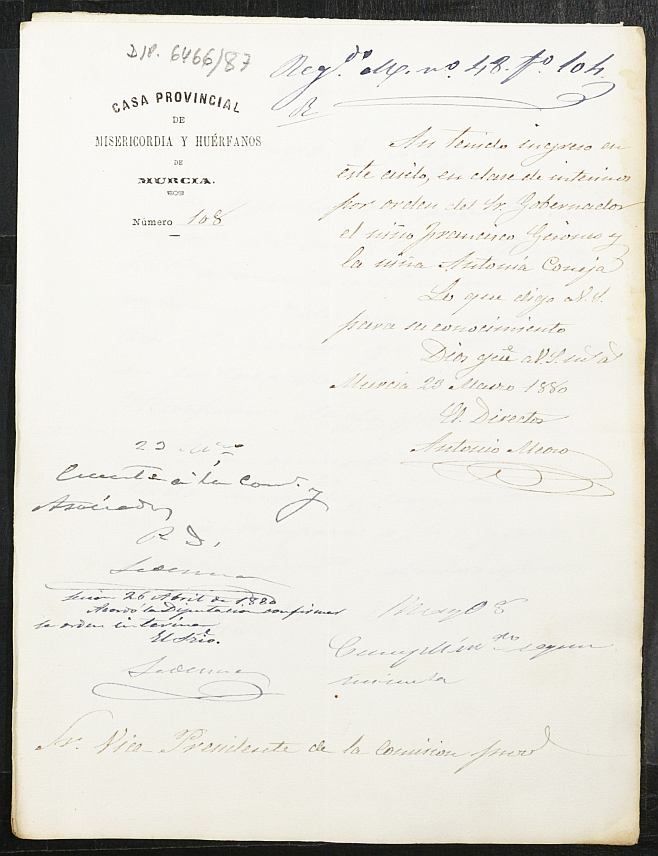 DIP. 6466/87
Reg.do M. nº. 48. fº. 104.
CASA PROVINCIAL
DE
MISERICORDIA Y HUÉRFANOS
DE
MURCIA.
Número 108
An tenido ingreso en
este asilo, en clase de interinos
por orden del Sr. Gobernador
el niño Francisco Gironés y
la niña Antonia Coneja
Lo que digo a V.S.
para su conocimiento
Dios gue. a V.S. m.s a.s
Murcia 23 Marzo 1880
El Director
Antonio
23 Mzo
Cuenta á la Com. y
P. D.
Ledesma
Sesion 26 Abril de 1880
Acordó la Diputacion confirmar
la orden interina
El Srio.
Ledesma
Mayo 8
Cumplido segun
minuta
Sr. Vice-Presidente de la Comision provl